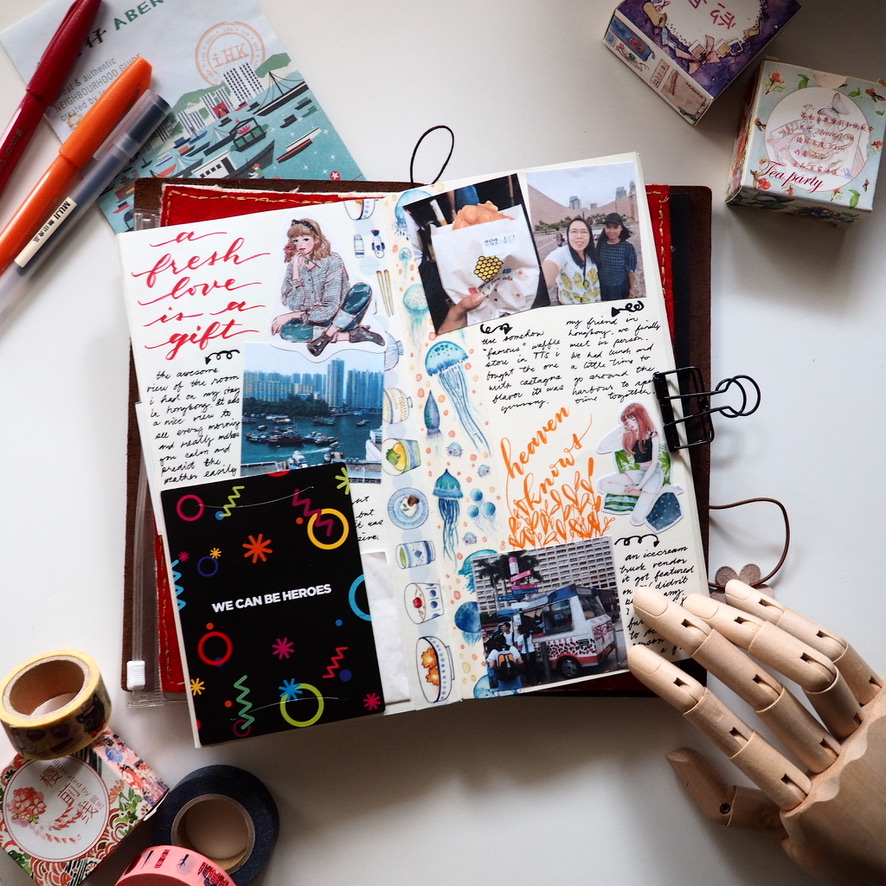 ABER
iHK
& authentic
NEIGHBOURHOOD GUIDE
created by
MUJ
Tea party
a
fresh
love
is a
gift
the awesome
view of the room
i had on my stay
in hongkong. it has
a nice view to
see every morning
and really makes
you calm and
predict the
weather easily
but
it was
WE CAN BE HEROES
the somehow
"famous" waffle
store in TTS i
bought the one
with castagna
flavor it was
yummy.
my friend in
hongkong, we finally
meet in person
we had lunch and
a little time to
go around the
harbour to
time together.
heaven
knows
an icecream
truck vendor
it got featured
didn't
any